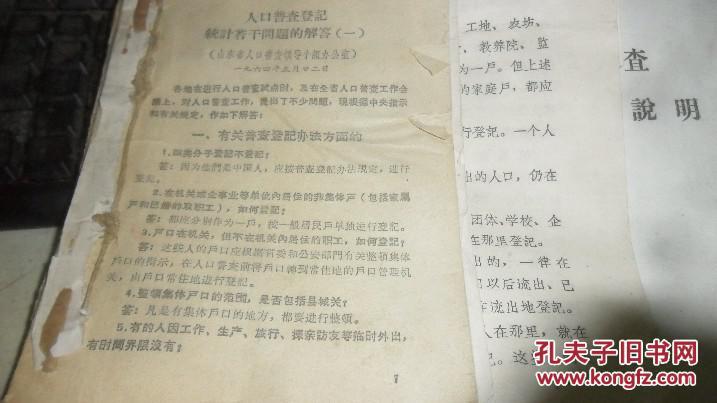 人口普查登記
統計若干問題的解答（一）
（山东省人口普查領导小組办公室）
一九六四年三月二日
各地在进行人口普查試点时，及在全省人口普查工作会
議上，对人口普查工作，提出了不少問題，現根据中央指示
和有关規定，作如下解答：
一、有关普查登記办法方面的
1.四类分子登記不登記？
答：因为他們是中国人，应按普查登記办法規定，进行
登記。
2.在机关或企事业等单位內居住的非集体戶（包括家属
戶和已婚的双职工），如何登記？
答：都应分別作为一戶，按一般居民戶单独进行登記。
3.戶口在机关，但不在机关內居住的职工，如何登記？
答：这些人的戶口应根据省委和公安部門有关整頓集体
戶口的指示，在人口普查前将戶口轉到常住地的戶口管理机
关，由戶口常住地进行登記。
4.整頓集体戶口的范围，是否包括县城关？
答：凡是有集体戶口的地方，都要进行整頓。
5.有的人因工作、生产、旅行、探亲訪友等临时外出，
有时間界限沒有？
1
工地、农坊、
、教养院、监
为一戶。但上述
的家庭戶，都应
行登記。一个人
出的人口，仍在
团体、学校、企
在那里登記。
出的，一律在
口以后流出、已
在流出地登記。
人在那里，就在
記。这
查
說明
孔夫子旧书网
www.kongfz.com